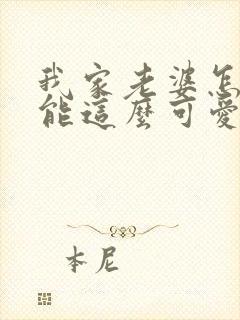 我家老婆怎
能這麼可愛
本尼